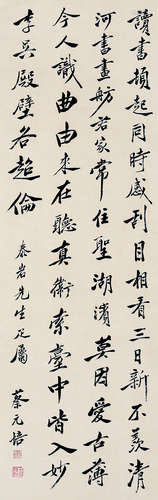 讀書頡起同時感刮目相看三日新不羨清
河書畫舫君家常住聖湖濱莫因愛古薄
今人識曲由來在聽真衛索臺中皆入妙
李吳殿壁各超倫
泰岩先生正屬
蔡元培